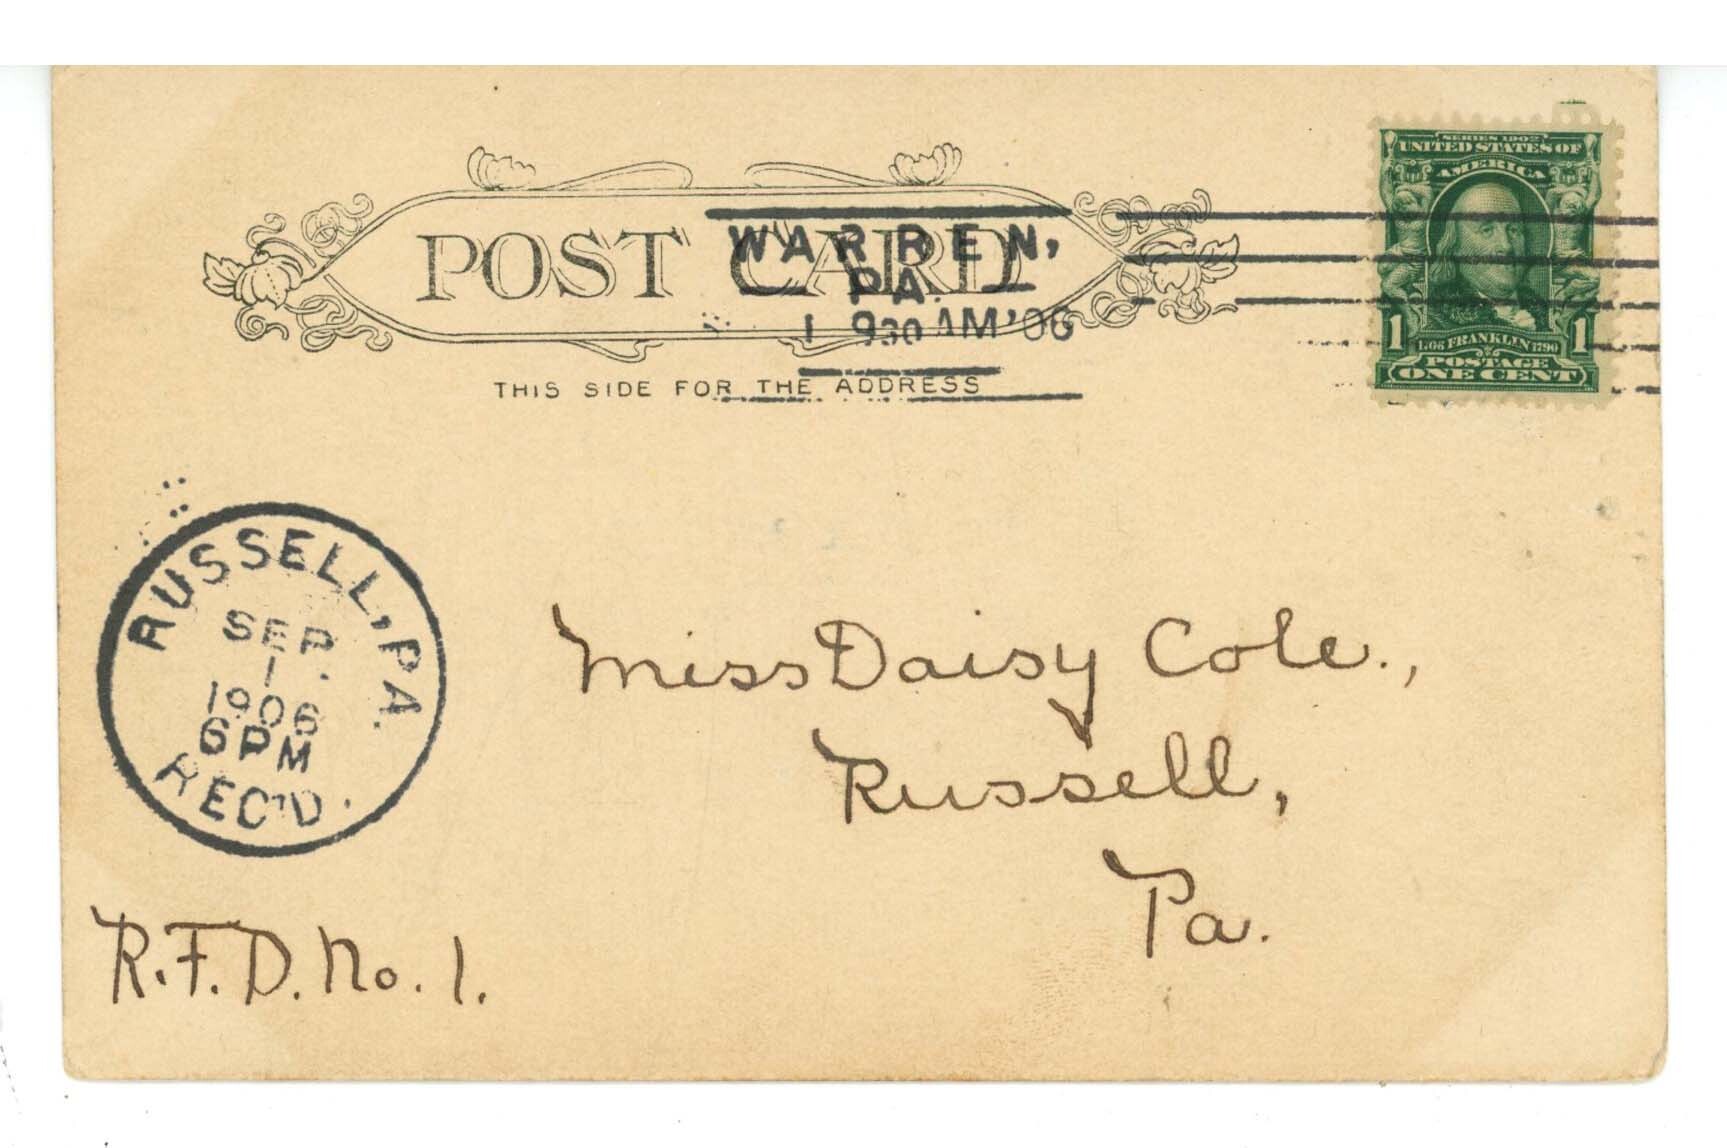 POST CARD
WARREN,
PA.
1 930 AM '06
THIS SIDE FOR THE ADDRESS
SERIES 1902
UNITED STATES OF
AMERICA
1706 FRANKLIN 1790
1 1
POSTAGE
ONE CENT
RUSSELL, PA.
SEP
1
1906
6PM
REC'D.
Miss Daisy Cole.,
Russell,
Pa.
R.F.D. No. 1.